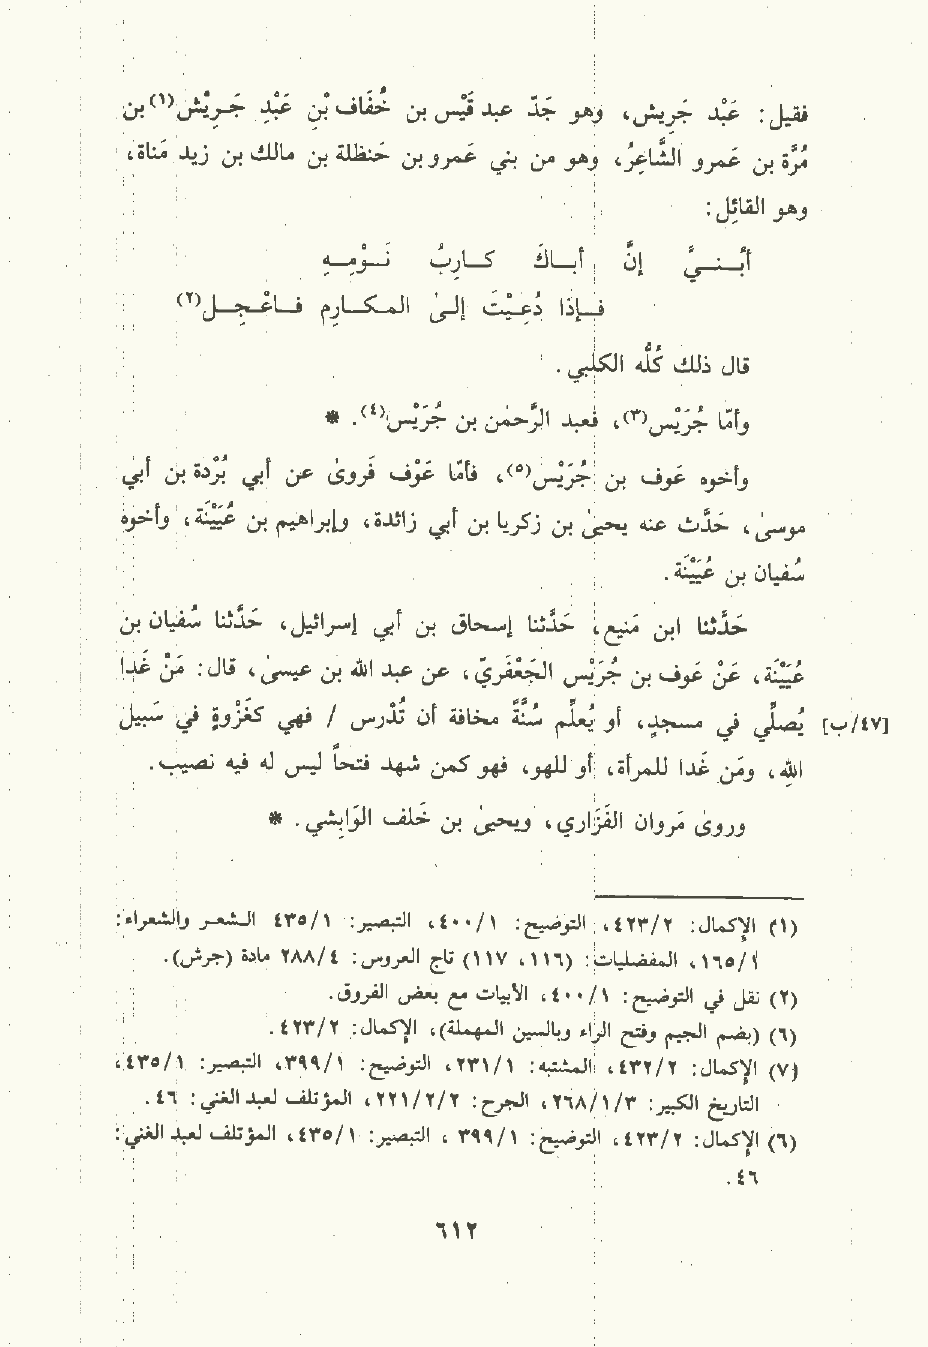 فقيل: عَبْد جَرِيش، وهو جَدّ عبد قَيْس بن خُفَاف بْنِ عَبْدِ جَـرِيْش(١) بن
مُرَّة بن عَمرو الشَّاعِرُ، وهو من بني عَمرو بن حَنظلة بن مالك بن زيد مَناة،
وهو القائِل:
أبُـنـيَّ إنَّ أبــاكَ كــارِبُ يَـوْمِـهِ
فـإذَا دُعِـيْـتَ إلـى المكـارِمِ فـاعْـجِـلِ(٢)
قال ذلك كُلَّه الكلبي.
وأمّا جُرَيْس(٣)، فعبد الرَّحمٰن بن جُرَيْس(٤). *
وأخوه عَوف بن جُرَيْس(٥)، فأمّا عَوْف فَروىٰ عن أبي بُرْدة بن أبي
موسىٰ، حَدَّث عنه يحيىٰ بن زكريا بن أبي زائدة، وإبراهيم بن عُيَيْنَة، وأخوه
سُفيان بن عُيَيْنَة.
حَدَّثنا ابن مَنيع، حَدَّثنا إسحاق بن أبي إسرائيل، حَدَّثنا سُفيان بن
عُيَيْنَة، عَنْ عَوف بن جُرَيْس الجَعْفَريّ، عن عبد الله بن عيسىٰ، قال: مَنْ غَدا
[٤٧/ب] يُصلِّي في مسجدٍ، أو يُعلِّم سُنَّة مخافة أن تُدْرس / فهي كغَزْوةٍ في سَبيل
اللهِ، ومَن غَدا للمرأة، أو للهو، فهو كمن شهد فتحاً ليس له فيه نصيب.
وروىٰ مَروان الفَزَاري، ويحيىٰ بن خَلَف الوَابِشي. *
(١) الإكمال: ٤٢٣/٢، التوضيح: ٤٠٠/١، التبصير: ٤٣٥/١ الشعر والشعراء:
١٦٥/١، المفضليات: (١١٦، ١١٧) تاج العروس: ٢٨٨/٤ مادة (جرش).
(٢) نقل في التوضيح: ٤٠٠/١، الأبيات مع بعض الفروق.
(٦) (بضم الجيم وفتح الراء وبالسين المهملة)، الإكمال: ٤٢٣/٢.
(٧) الإكمال: ٤٣٢/٢، المشتبه: ٢٣١/١، التوضيح: ٣٩٩/١، التبصير: ٤٣٥/١،
التاريخ الكبير: ٢٦٨/١/٣، الجرح: ٢٢١/٢/٢، المؤتلف لعبد الغني: ٤٦.
(٦) الإكمال: ٤٢٣/٢، التوضيح: ٣٩٩/١، التبصير: ٤٣٥/١، المؤتلف لعبد الغني:
٤٦.
٦١٢